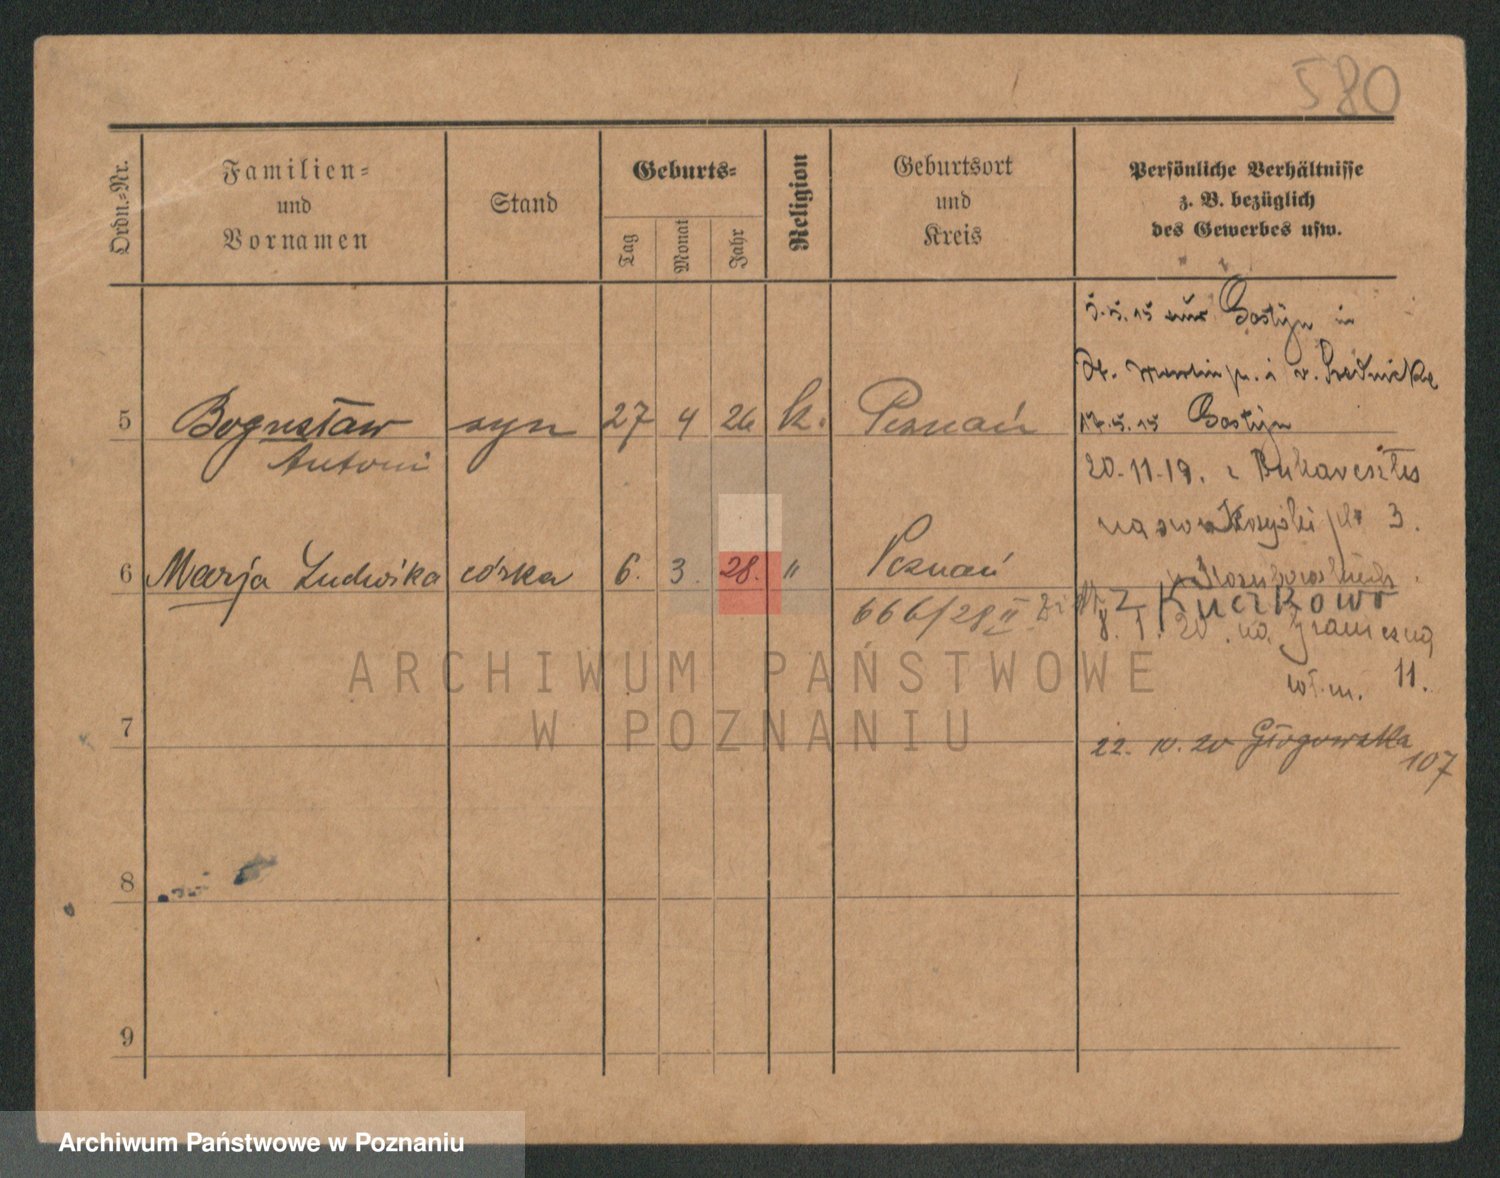 580
Ordn.-Nr.
Familien-
und
Vornamen
Stand
Geburts-
Tag
Monat
Jahr
Religion
Geburtsort
und
Kreis
Persönliche Verhältnisse
z. B. bezüglich
des Gewerbes usw.
5 Bogusław syn 27 4 26 k. Poznań
Antoni
6 Marja Ludwika córka 6. 3. 28. " Poznań
666/28 II
7
8
9
5.5.15 Gostyn in
17.5.15 Gostyn
20-11-19. z
3.
z Kuczkowo
8. 1. 20. na Graniczną
11.
22. IV. 20 Głogowska
107
ARCHIWUM PAŃSTWOWE
W POZNANIU
Archiwum Państwowe w Poznaniu